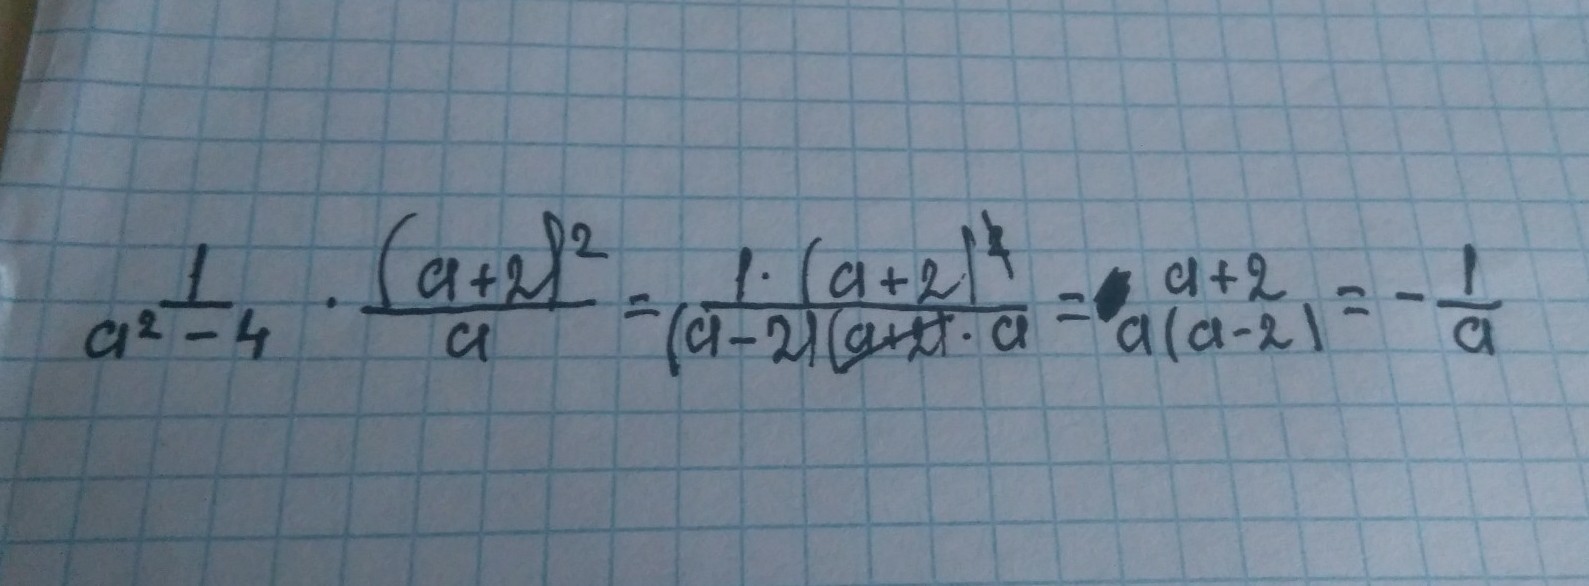 1/(a² - 4) · (a+2)²/a = 1·(a+2)²/((a-2)(a+2)·a) = a+2/a(a-2) = -1/a